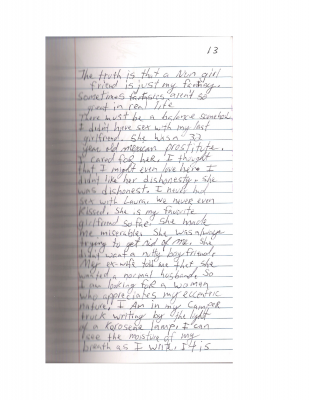 13
The truth is that a Nun girl
friend is just my fantasy.
sometimes fantasies arent so
great in real life
There must be a balance somehow
I didnt have sex with my last
girlfriend. She was a 33
year old mexican prostitute.
I cared for her. I thought
that I might even love her. I
didnt like her dishonesty. She
was dishonest. I never had
sex with Laura. We never even
Kissed. She is my favorite
girlfriend so far. She made
me miserable. She was always
trying to get rid of me. She
didnt want a nutty boyfriend.
My ex-wife told me that she
wanted a normal husband. So
I am looking for a woman
who appreciates my eccentric
nature. I Am in my camper
truck writing by the light
of a Kerosene lamp. I can
see the moisture of my
breath as I write. It is